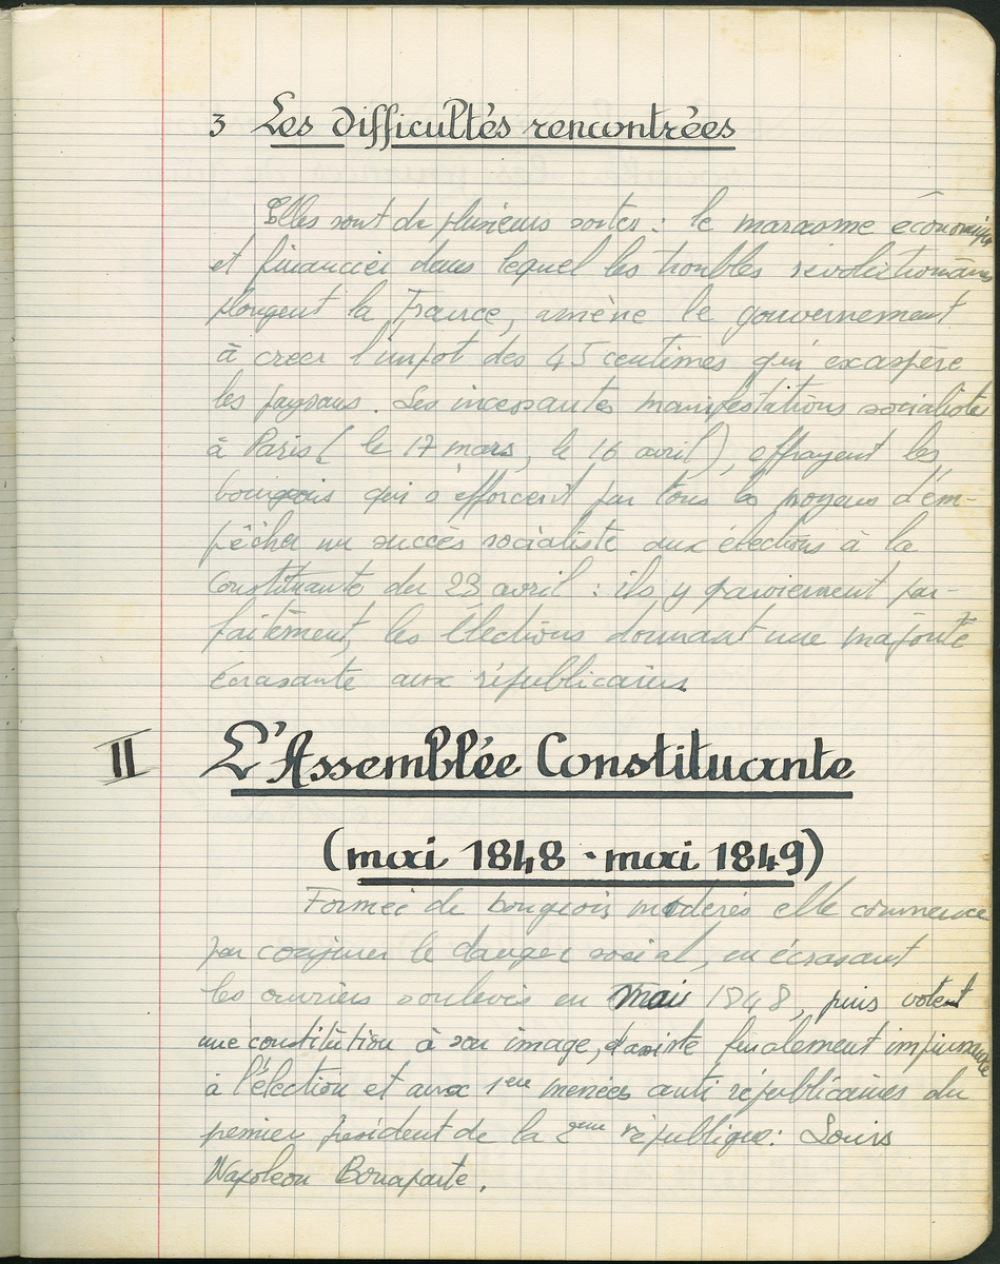 3 Les difficultés rencontrées
Elles sont de plusieurs sortes : le marasme économique
et financier dans lequel les troubles révolutionnaires
plongent la France, amène le gouvernement
à créer l'impot des 45 centimes qui exaspère
les paysans. Les incessantes manifestations socialiste
à Paris ( le 17 mars, le 16 avril ), effrayent les
bourgeois qui s'efforcent par tous les moyens d'em-
pêcher un succès socialiste aux élections à la
Constituante du 23 avril : ils y parviennent par-
faitement, les élections donnant une majorité
écrasante aux républicains.
II L'Assemblée Constituante
(mai 1848 - mai 1849)
Formée de bourgeois modérés elle commence
par conjurer le danger social, en écrasant
les ouvriers soulevés en mai 1848, puis votent
une constitution à son image, assiste finalement impuissante
à l'élection et aux 1eres menées anti républicaines du
premier president de la 2eme république : Louis
Napoleon Bonaparte.